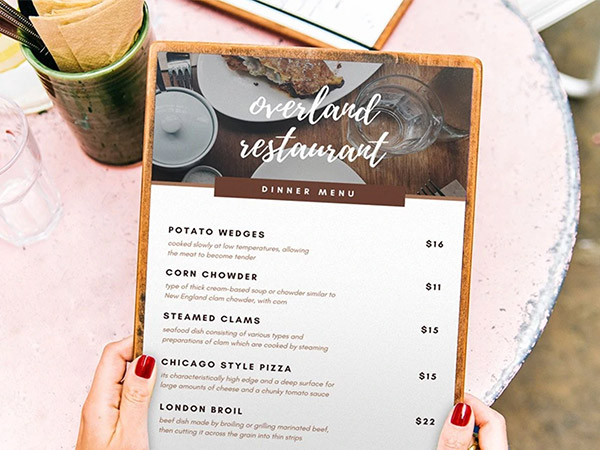 overland
restaurant
DINNER MENU
POTATO WEDGES $16
cooked slowly at low temperatures, allowing
the meat to become tender
CORN CHOWDER $11
type of thick cream-based soup or chowder similar to
New England clam chowder, with corn
STEAMED CLAMS $15
seafood dish consisting of various types and
preparations of clam which are cooked by steaming
CHICAGO STYLE PIZZA $15
its characteristically high edge and a deep surface for
large amounts of cheese and a chunky tomato sauce
LONDON BROIL $22
beef dish made by broiling or grilling marinated beef,
then cutting it across the grain into thin strips